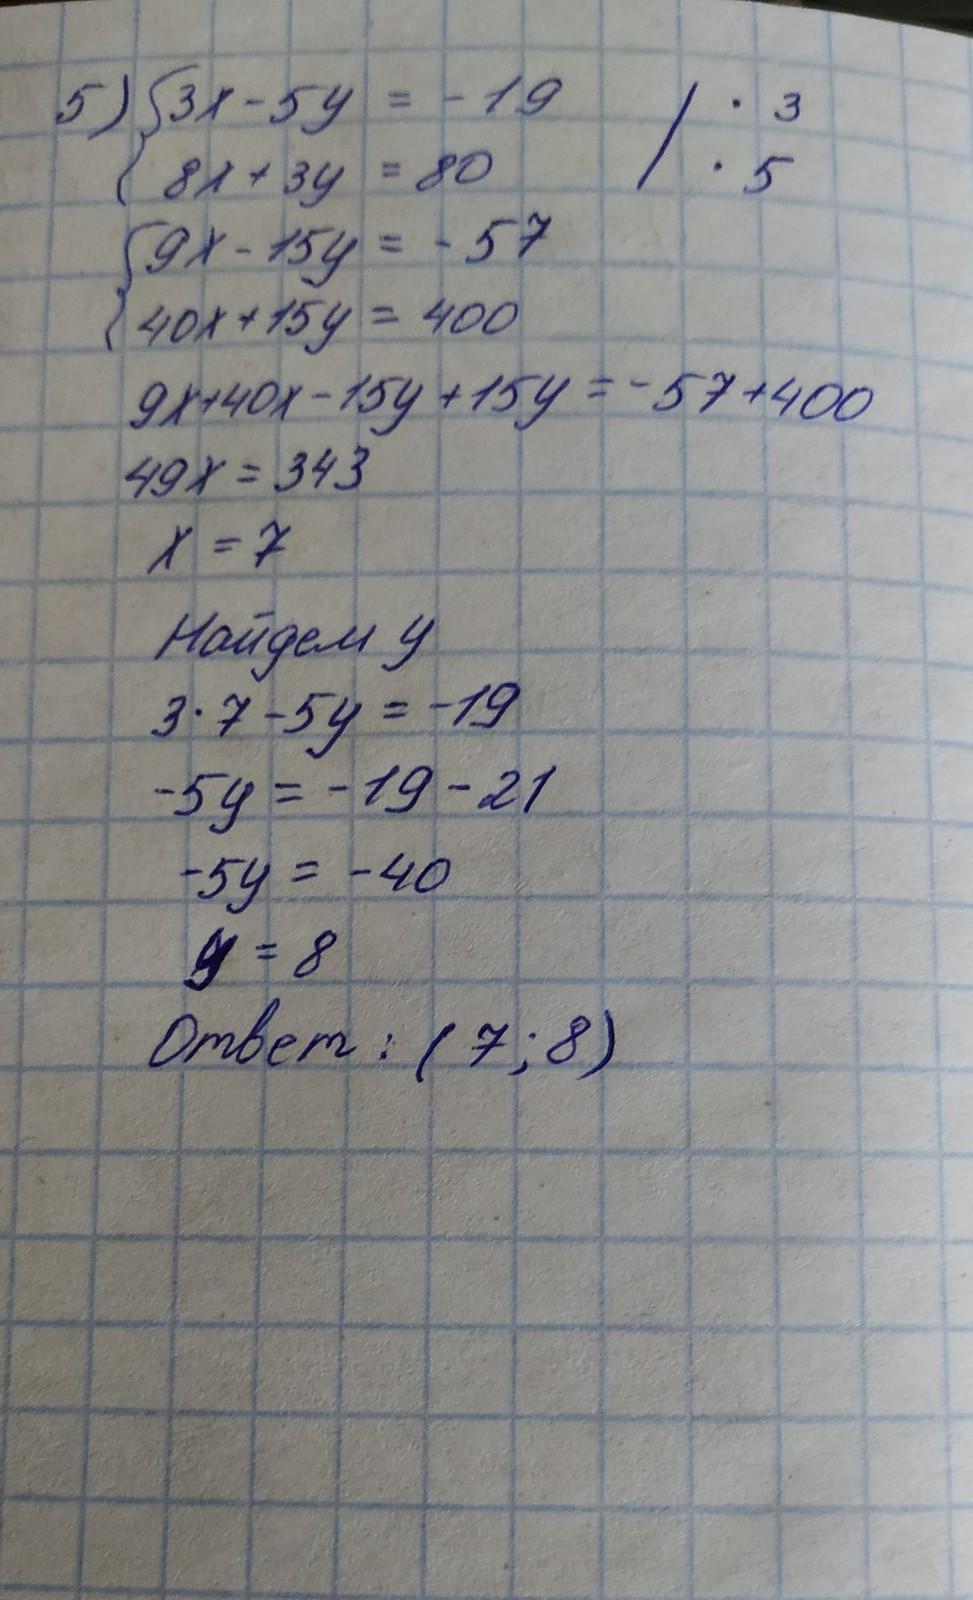 5) {3x - 5y = -19 / · 3
{8x + 3y = 80 / · 5
{9x - 15y = -57
{40x + 15y = 400
9x+40x - 15y + 15y = -57 + 400
49x = 343
x = 7
Найдем y
3 · 7 - 5y = -19
-5y = -19 - 21
-5y = -40
y = 8
Ответ: (7; 8)